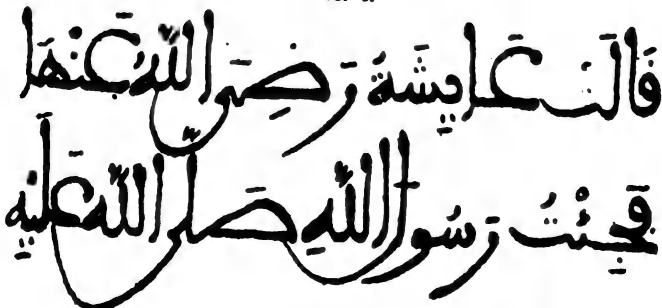 قَالَت عَايِشَةُ رَضِيَ اللَّهُ عَنْهَا
فَجِئْتُ رَسُولَ اللَّهِ صَلَّى اللَّهُ عَلَيْهِ